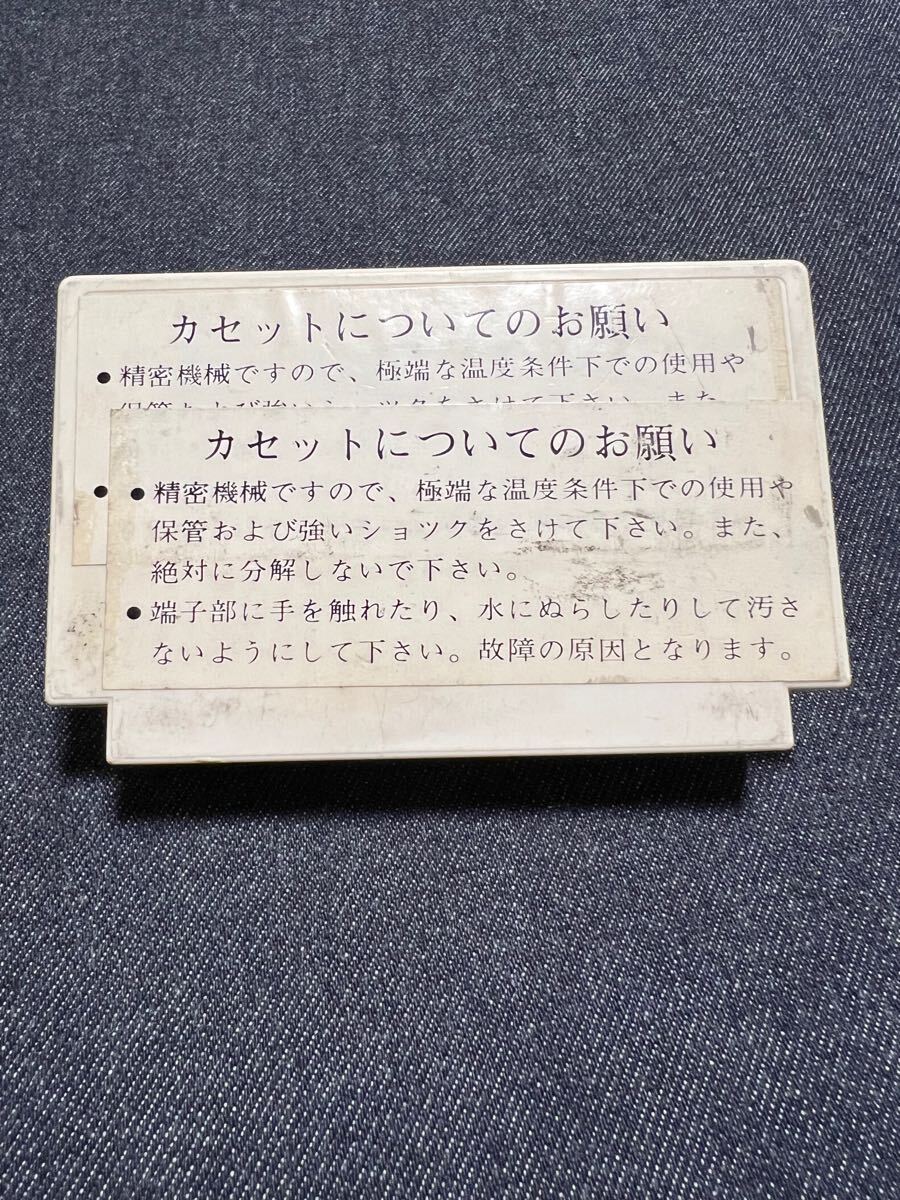 カセットについてのお願い
●精密機械ですので、極端な温度条件下での使用や
保管および強いショックをさけて下さい。また
●
カセットについてのお願い
●精密機械ですので、極端な温度条件下での使用や
保管および強いショツクをさけて下さい。また、
絶対に分解しないで下さい。
●端子部に手を触れたり、水にぬらしたりして汚さ
ないようにして下さい。故障の原因となります。